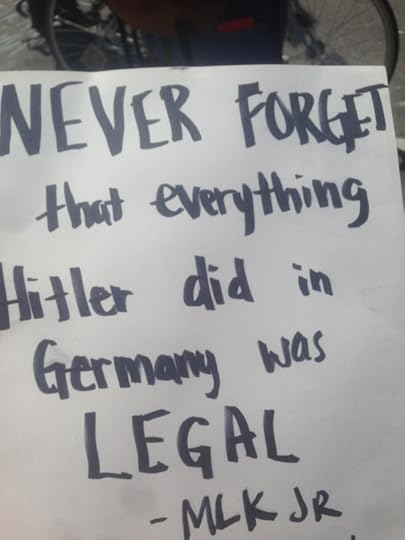 NEVER FORGET
that everything
Hitler did in
Germany was
LEGAL
- MLK JR